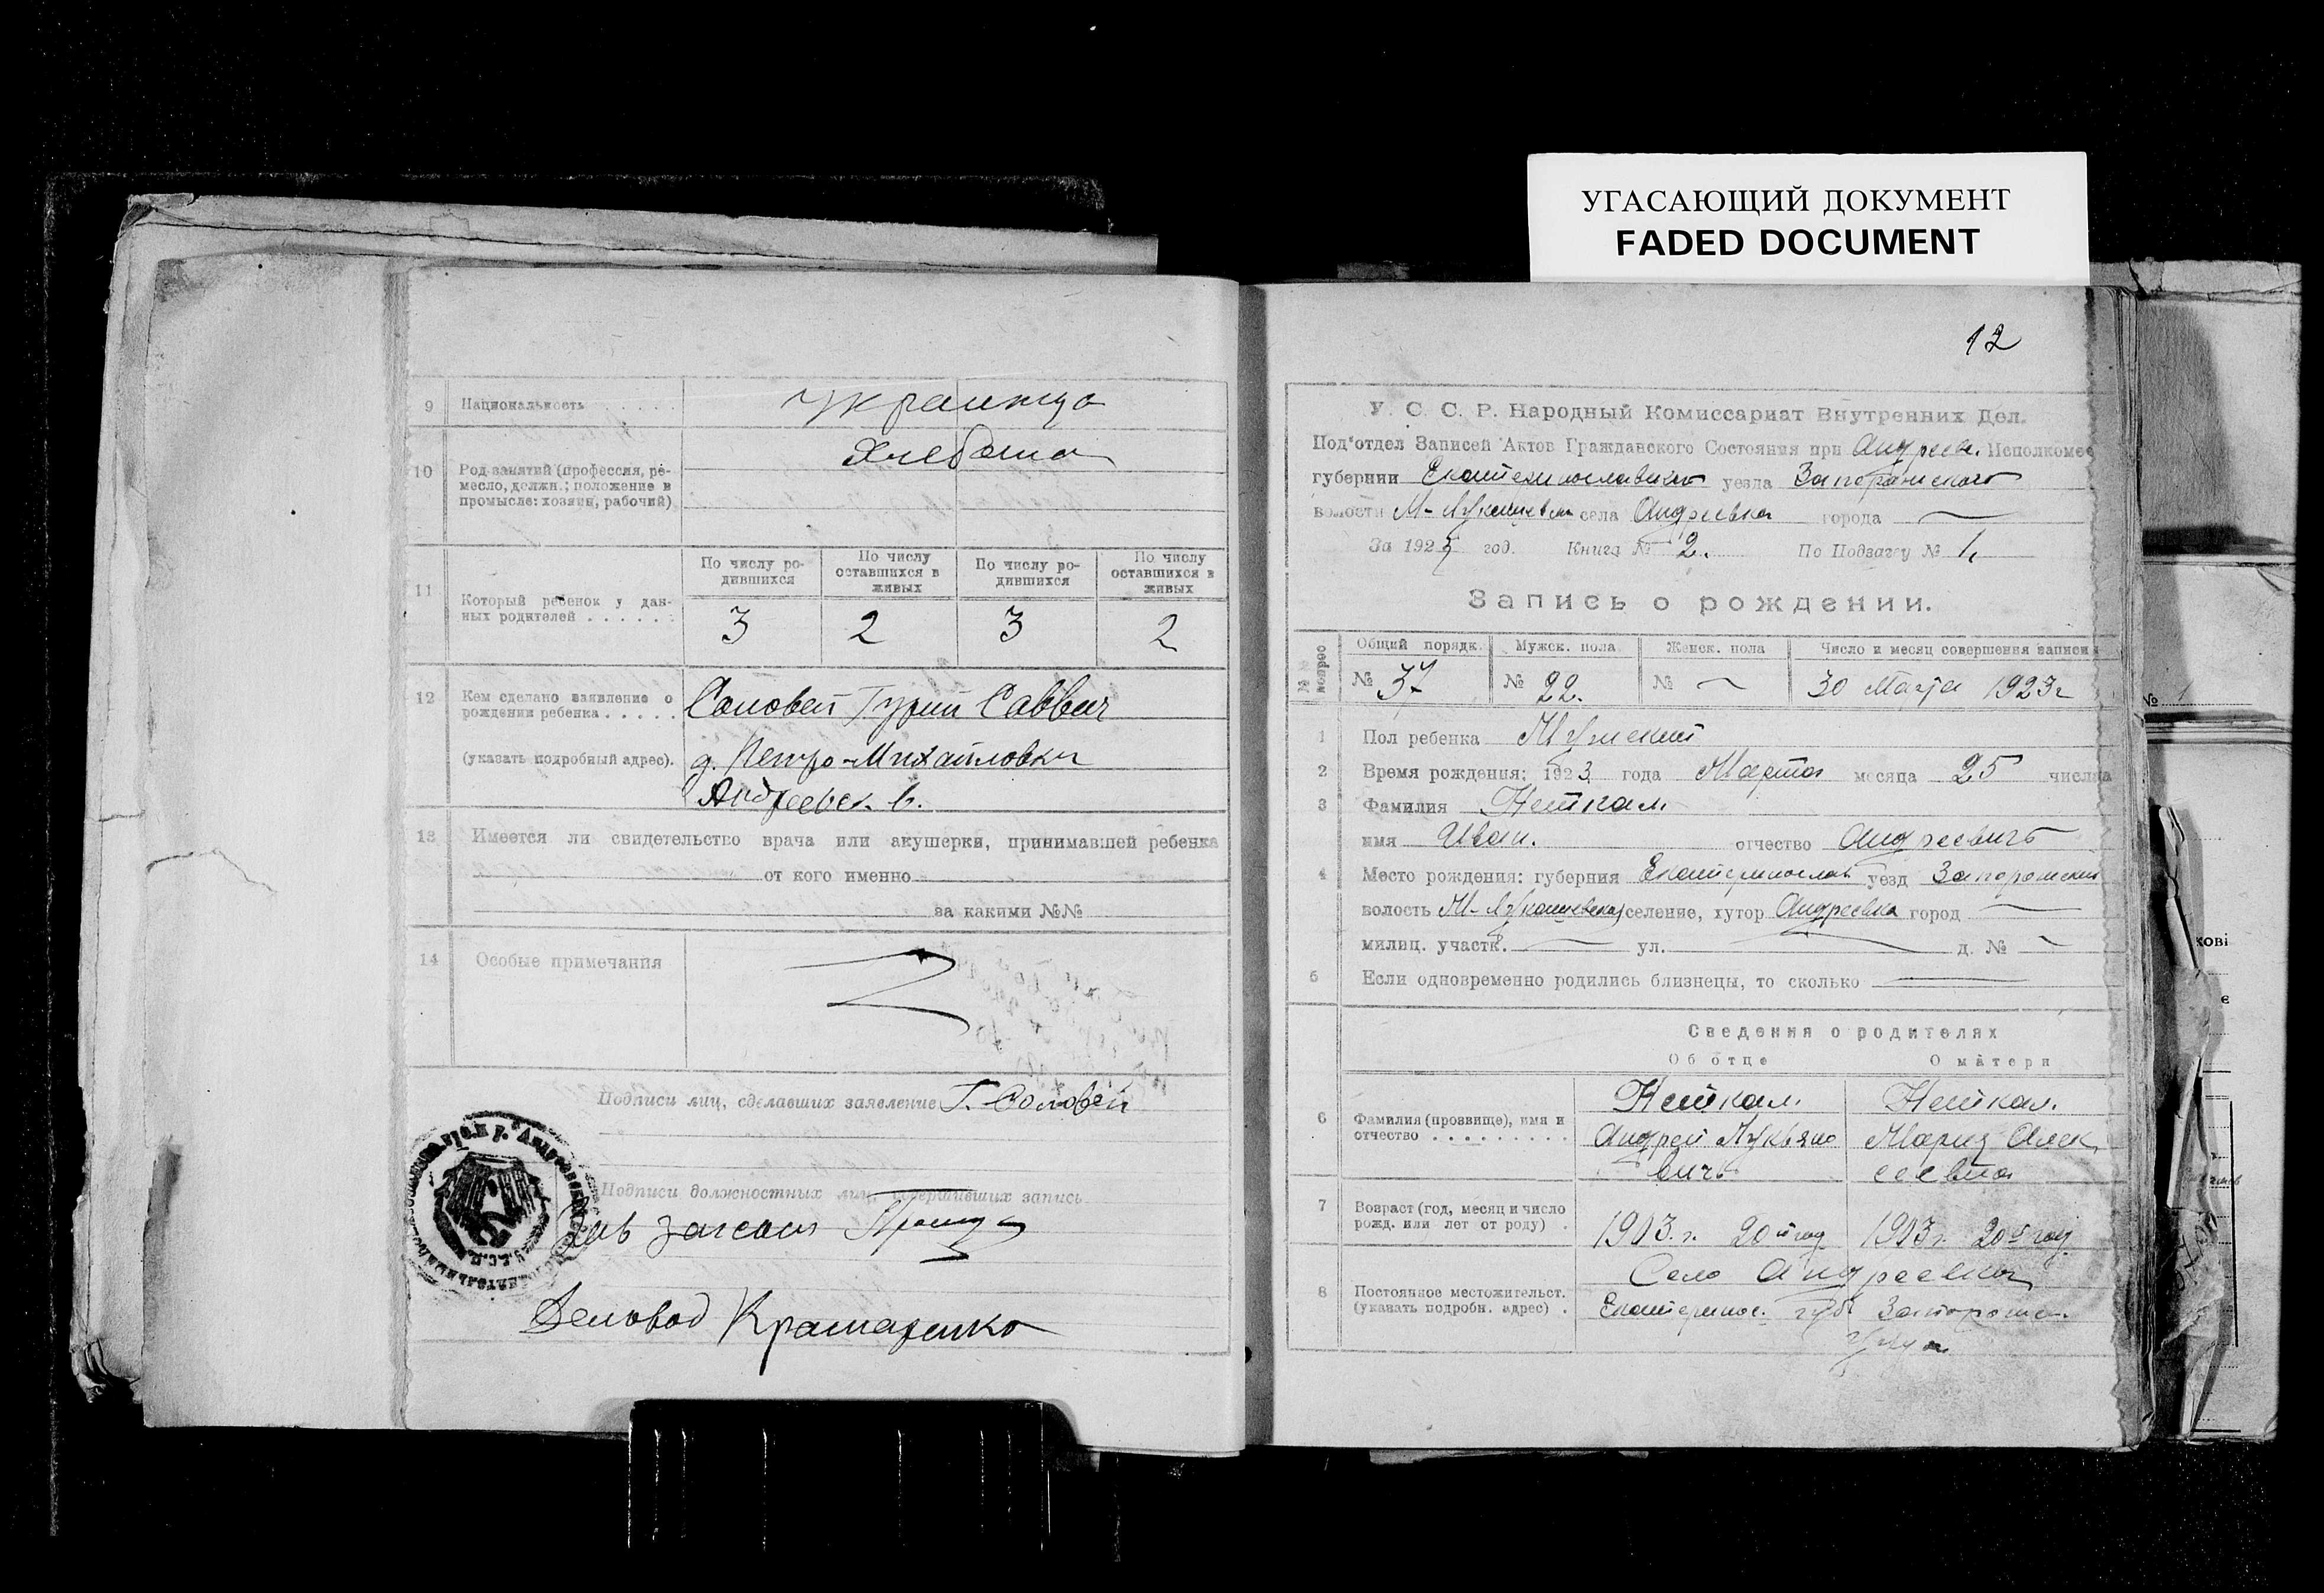 УГАСАЮЩИЙ ДОКУМЕНТ
FADED DOCUMENT
9 Национальность . . . . . украинцы
10 Род занятий (профессия, ре-
месло, должн.; положение в
промысле: хозяин, рабочий)
Хлебопаш
11 Который ребенок у дан-
ных родителей . . . . . .
По числу ро-
дившихся
По числу
оставшихся в
живых
По числу ро-
дившихся
По числу
оставшихся в
живых
3 2 3 2
12 Кем сделано заявление о
рождении ребенка . . . . .
(указать подробный адрес).
Соловей Гурий Саввич
д. Петро-Михайловки
Андреевск. в.
13 Имеется ли свидетельство врача или акушерки, принимавшей ребенка
от кого именно
за какими №№
14 Особые примечания
Подписи лиц, сделавших заявление Г. Соловей
Подписи должностных лиц, совершивших запись
Зав загсом
Деловод Крамаренко
12
У. С. С. Р. Народный Комиссариат Внутренних Дел.
Под'отдел Записей Актов Гражданского Состояния при Андреев. Исполкоме
губернии Екатеринославского уезда Запорожского
волости села Андреевка города —
За 1923 год. Книга № 2. По Подзагсу № 1.
Запись о рождении.
№№ вопрос
Общий порядк. Мужск. пола Женск. пола Число и месяц совершения записи
№ 37 № 22. № — 30 Марта 1923 г
1 Пол ребенка Мужский
2 Время рождения: 1923 года Марта месяца 25 числа
3 Фамилия Нешкал.
имя Иван. отчество Андреевичъ
4 Место рождения: губерния Екатеринослав уезд Запорожский
волость селение, хутор Андреевка город —
милиц. участк. — ул. — д. № —
5 Если одновременно родились близнецы, то сколько —
Сведения о родителях
Об отце О матери
6 Фамилия (прозвище), имя и
отчество . . . . . . . . .
Нешкал. Нешкал.
Андрей Лукьяно Мария Алек
вичъ сеевна
7 Возраст (год, месяц и число
рожд. или лет от роду) .
1903. г. 20й год 1903 г. 20й год
8 Постоянное местожительст.
(указать подробн. адрес) .
Село Андреевка
Екатеринос. губ. Запорожск.
уезда